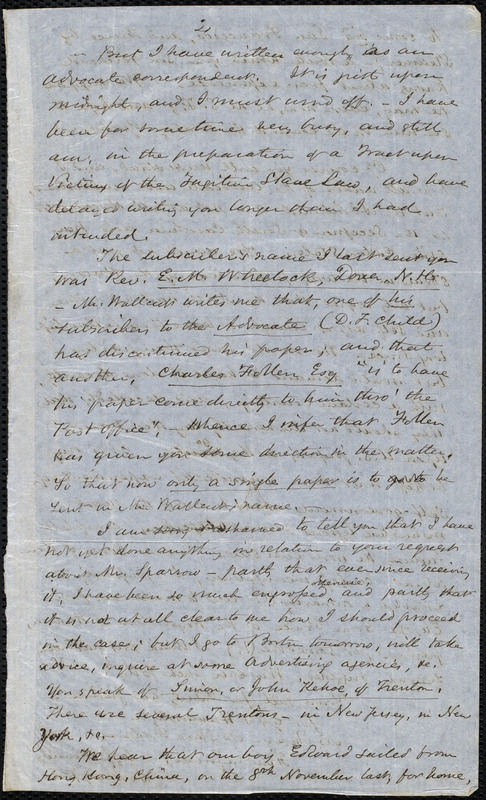 2,
– But I have written enough as an
Advocate correspondent. It is just upon
midnight, and I must wind off. – I have
been for some time very busy, and still
am, in the preparation of a Tract upon
Victims of the Fugitive Slave Law, and have
delayed writing you longer than I had
intended.
The subscriber's name I last sent you
was Rev. E. M. Wheelock, Dover, N. H.
– Mr. Wallcutt writes me that, one of his
subscribers to the Advocate (D. F. Child)
has discontinued his paper; and that
another, Charles Follen Esq. "is to have
his paper come directly to him thro' the
Post Office", – Whence I infer that Follen
has given you some direction in the matter.
So that now only a single paper is to be
sent in Mr. Wallcutt's name.
I am ashamed to tell you that I have
not yet done anything in relation to your request
about Mr. Sparrow – partly that ever since receiving
it, I have been so much engrossed and partly that
it is not at all clear to me how I should proceed
in the case; but I go to Boston tomorrow, will take
advice, inquire at some Advertising agencies, &c.
You speak of Simon, or John Kehoe, of Trenton.
There are several Trentons – in New Jersey, in New
York, &c.
We hear that our boy Edward sailed from
Hong Kong, China, on the 8th November last, for home,